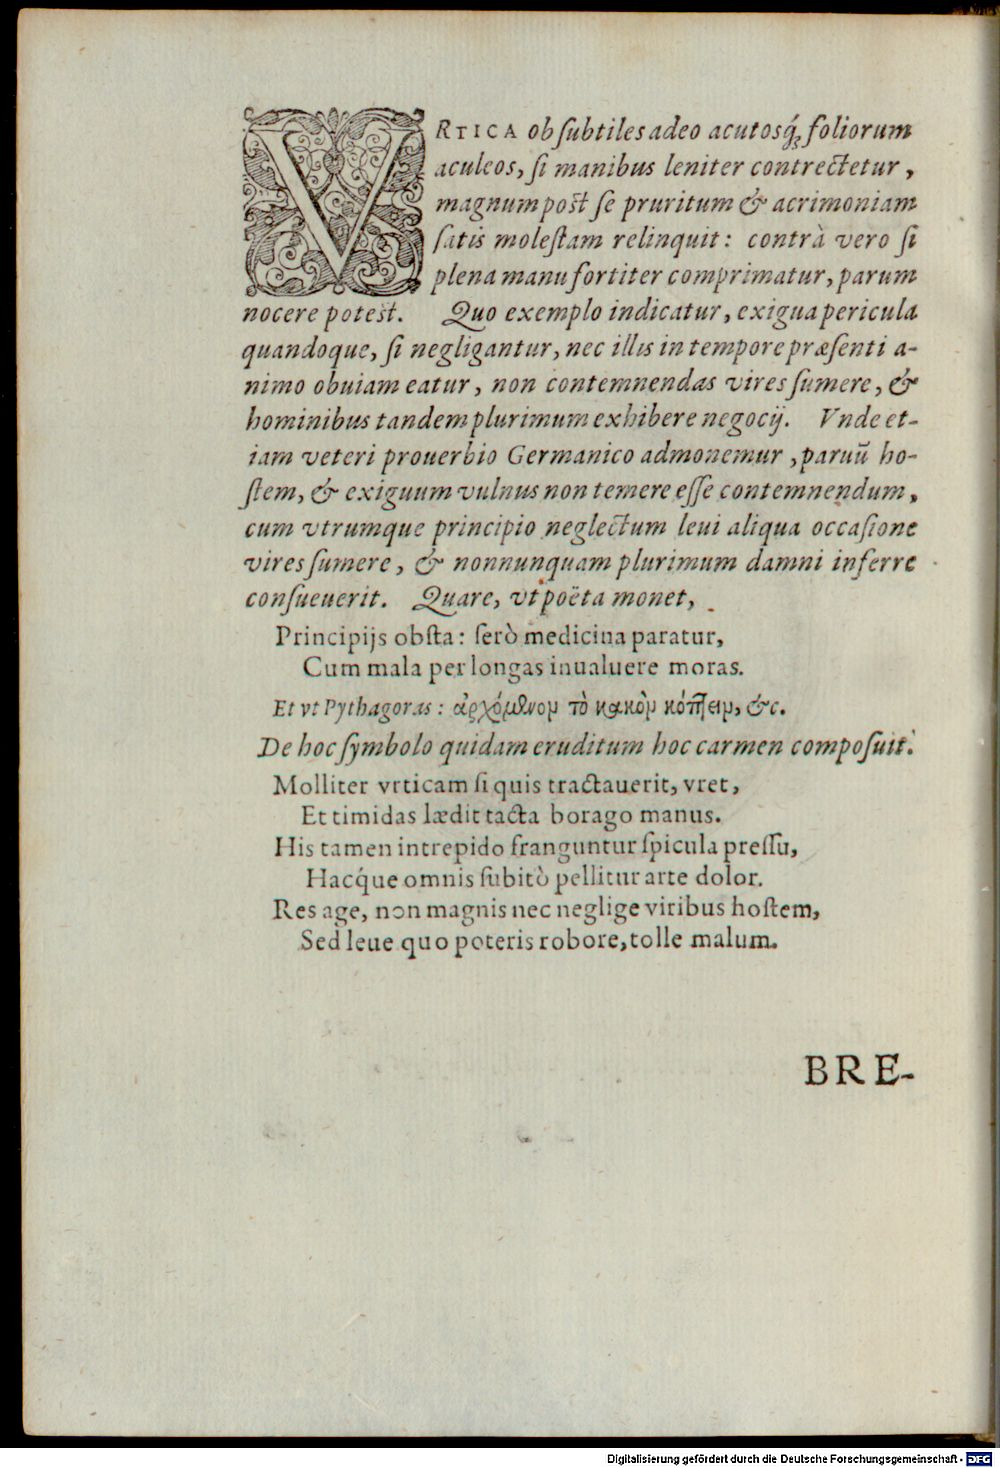 VRTICA ob ſubtiles adeo acutosq́; foliorum
aculeos, ſi manibus leniter contrectetur,
magnum poſt ſe pruritum & acrimoniam
ſatis moleſtam relinquit: contrà vero ſi
plena manu fortiter comprimatur, parum
nocere poteſt. Quo exemplo indicatur, exigua pericula
quandoque, ſi negligantur, nec illis in tempore præſenti a-
nimo obuiam eatur, non contemnendas vires ſumere, &
hominibus tandem plurimum exhibere negocij. Vnde et-
iam veteri prouerbio Germanico admonemur, paruũ ho-
ſtem, & exiguum vulnus non temere eſſe contemnendum,
cum vtrumque principio neglectum leui aliqua occaſione
vires ſumere, & nonnunquam plurimum damni inferre
conſueuerit. Quare, vt poëta monet,
Principijs obſta: ſerò medicina paratur,
Cum mala per longas inualuere moras.
Et vt Pythagoras: ἀρχόμενον τὸ κακὸν κόπτειν, &c.
De hoc ſymbolo quidam eruditum hoc carmen compoſuit:
Molliter vrticam ſi quis tractauerit, vret,
Et timidas lædit tacta borago manus.
His tamen intrepido franguntur ſpicula preſſu,
Hacq́ue omnis ſubitò pellitur arte dolor.
Res age, non magnis nec neglige viribus hoſtem,
Sed leue quo poteris robore, tolle malum.
BRE-
Digitalisierung gefördert durch die Deutsche Forschungsgemeinschaft - DFG